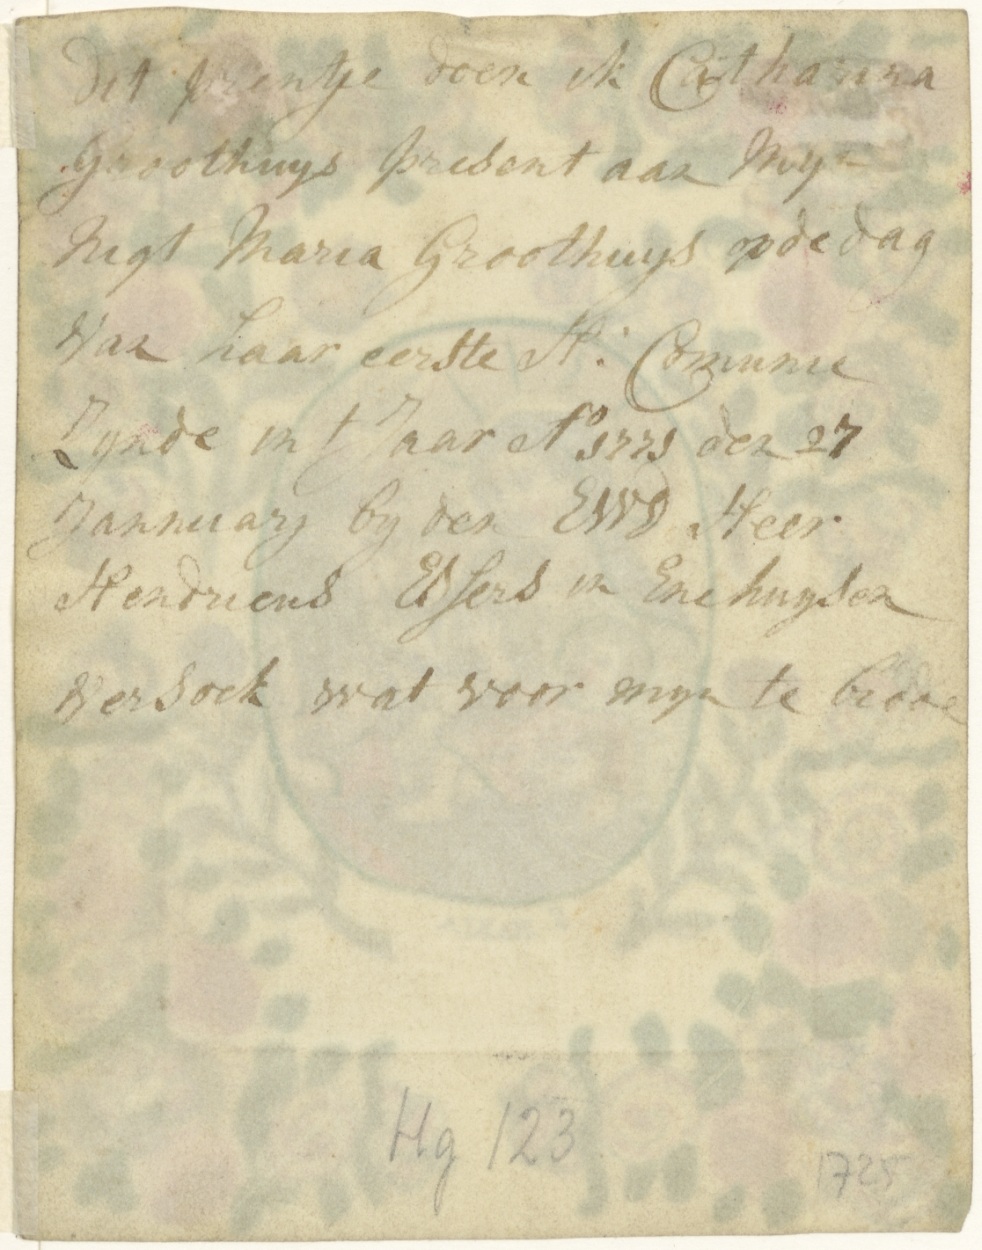 Dit prentje doen ik Catharina
Groothuys present aan Myn
Nigt Maria Groothuys op de dag
Van haar eerste H: Comunie
Zynde in t Jaar Ao 1771 den 27
Jannuary by den EWD Heer
Hendricus Elsers in Enchuysen
Versoek wat voor myn te bidde
Hg 123
1725